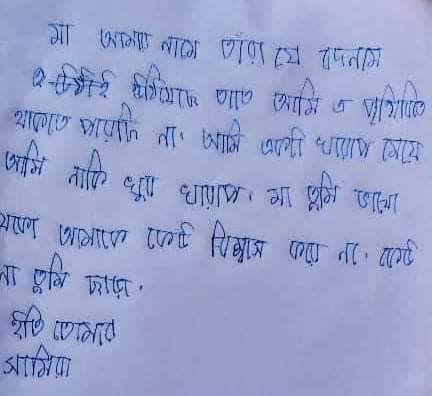 মা আমার নামে তাঁরা যে বদনাম
ছড়িয়েছে তাতে আমি এ পৃথিবিতে
থাকতে পারছি না। আমি একটা খারাপ মেয়ে
আমি নাকি খুব খারাপ। মা তুমি ভালো
থেকো আমাকে কেউ বিশ্বাস করে না। কেউ
না তুমি ছাড়া।
ইতি তোমার
সামিরা